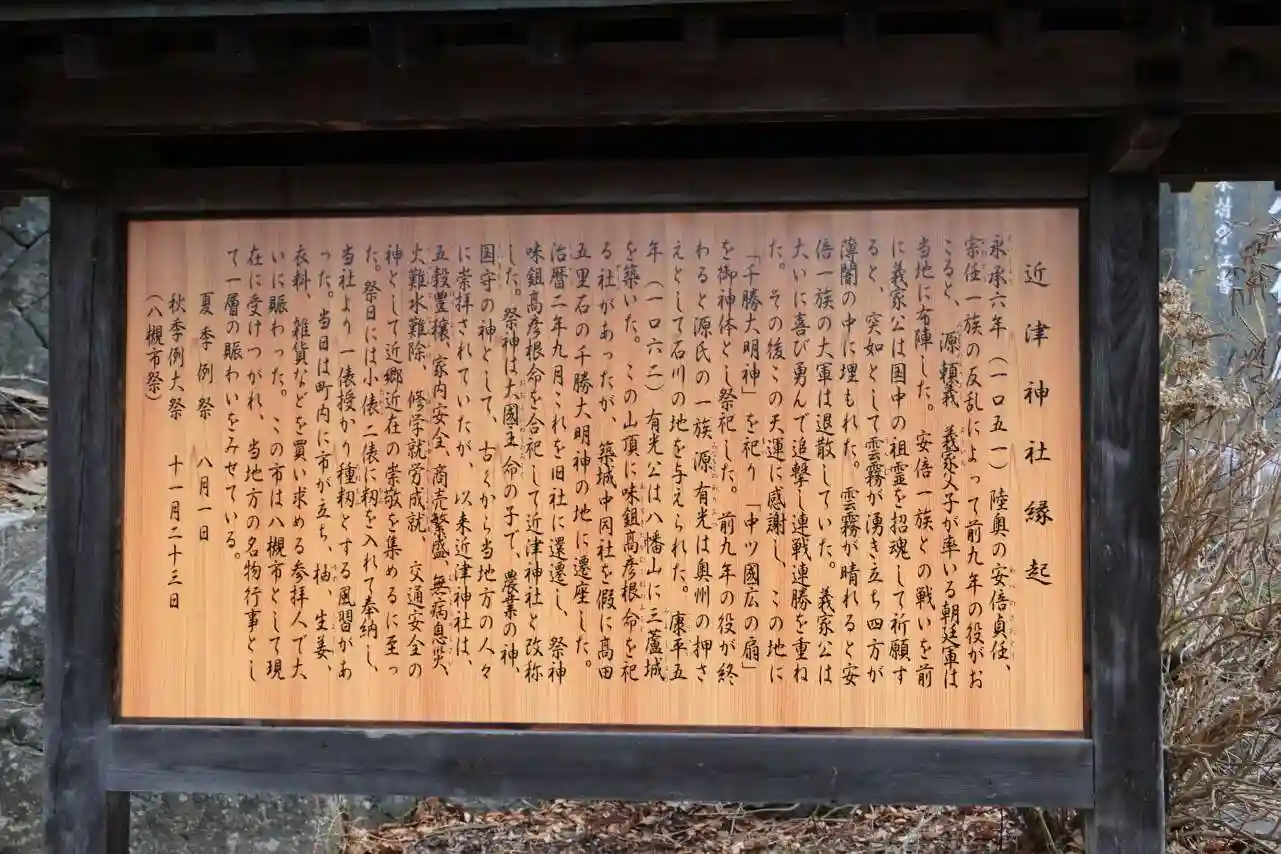 近津神社縁起
永承六年（一〇五一）陸奥の安倍貞任、
宗任一族の反乱によって前九年の役がお
こると、源頼義　義家父子が率いる朝廷軍は
当地に布陣した。安倍一族との戦いを前
に義家公は国中の祖霊を招魂して祈願す
ると、突如として雲霧が湧き立ち四方が
薄闇の中に埋もれた。雲霧が晴れると安
倍一族の大軍は退散していた。義家公は
大いに喜び勇んで追撃し連戦連勝を重ね
た。その後この天運に感謝し、この地に
「千勝大明神」を祀り「中ツ國広の扇」
を御神体とし祭祀した。前九年の役が終
わると源氏の一族源有光は奥州の押さ
えとして石川の地を与えられた。康平五
年（一〇六二）有光公は八幡山に三蘆城
を築いた。この山頂に味鉏高彦根命を祀
る社があったが、築城中同社を假に高田
五里石の千勝大明神の地に遷座した。
治暦二年九月これを旧社に還遷し、祭神
味鉏高彦根命を合祀して近津神社と改称
した。祭神は大國主命の子で、農業の神、
国守の神として、古くから当地方の人々
に崇拝されていたが、以来近津神社は、
五穀豊穣、家内安全、商売繁盛、無病息災、
火難水難除、修学就労成就、交通安全の
神として近郷近在の崇敬を集めるに至っ
た。祭日には小俵二俵に籾を入れて奉納し、
当社より一俵授かり種籾とする風習があ
った。当日は町内に市が立ち、柚、生姜、
衣料、雑貨などを買い求める参拝人で大
いに賑わった。この市は八槻市として現
在に受けつがれ、当地方の名物行事とし
て一層の賑わいをみせている。
夏季例祭　八月一日
秋季例大祭　十一月二十三日
（八槻市祭）